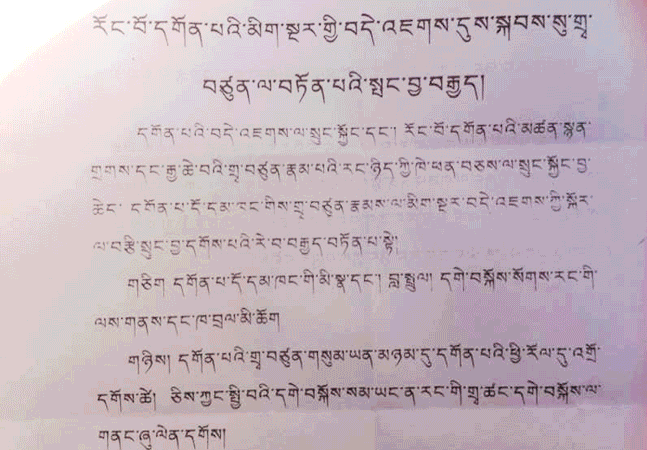 རོང་བོ་དགོན་པའི་མིག་སྔར་གྱི་བདེ་འཇགས་དུས་སྐབས་སུ་གྲྭ་
བཙུན་ལ་བཏོན་པའི་སྤང་བྱ་བརྒྱད།
དགོན་པའི་བདེ་འཇགས་ལ་སྲུང་སྐྱོང་དང་། རོང་བོ་དགོན་པའི་མཚན་སྙན་
གྲགས་དང་རྒྱ་ཆེ་བའི་གྲྭ་བཙུན་རྣམ་པའི་རང་ཉིད་ཀྱི་ཁེ་ཕན་བཅས་ལ་སྲུང་སྐྱོང་བྱ་
ཆེད་ དགོན་པ་དོ་དམ་ཁང་གིས་གྲྭ་བཙུན་རྣམས་ལ་མིག་སྔར་བདེ་འཇགས་ཀྱི་སྐོར་
ལ་བརྩི་སྲུང་བྱ་དགོས་པའི་རེ་བ་བརྒྱད་བཏོན་པ་སྟེ།
གཅིག དགོན་པ་དོ་དམ་ཁང་གི་མི་སྣ་དང་། བླ་སྤྲུལ། དགེ་བསྐོས་སོགས་རང་གི་
ལས་གནས་དང་ཁ་བྲལ་མི་ཆོག
གཉིས། དགོན་པའི་གྲྭ་བཙུན་གསུམ་ཡན་མཉམ་དུ་དགོན་པའི་ཕྱི་རོལ་དུ་འགྲོ་
དགོས་ཚེ། ཅིས་ཀྱང་སྤྱི་བའི་དགེ་བསྐོས་སམ་ཡང་ན་རང་གི་གྲྭ་ཚང་དགེ་བསྐོས་ལ་
གནང་ཞུ་ལེན་དགོས།